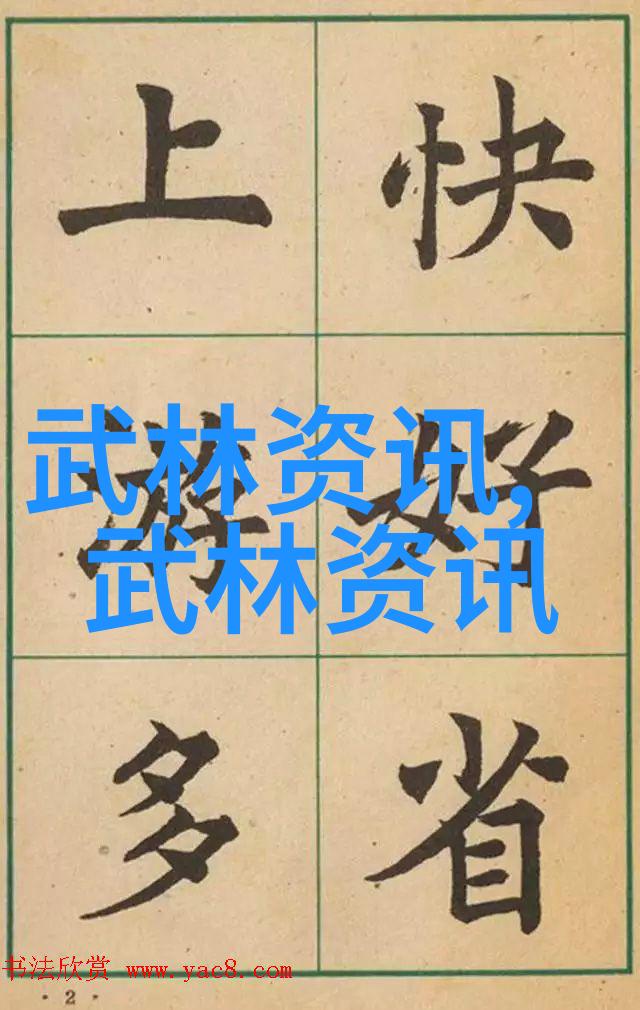 上游多
快好省
武林资讯,
武林资讯
书法欣赏 www.yac8.com
· 2 ·